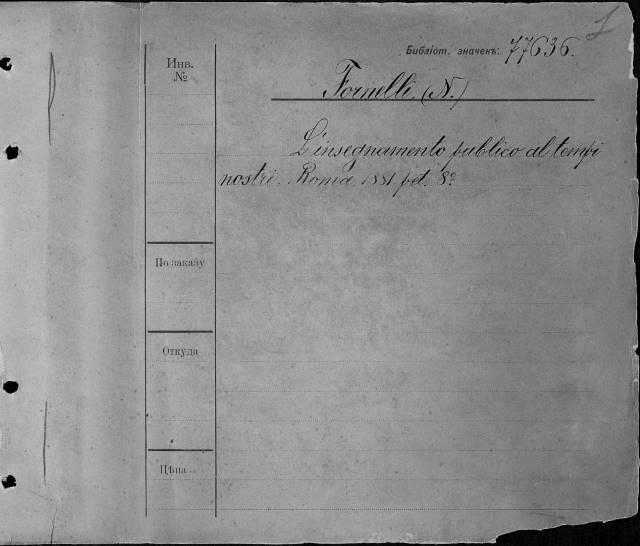 1
Библіот. значекъ: 77636.
Инв.
№
Fornelli (N.)
L'insegnamento publico al tempi
nostri. Roma 1881 pet. 8º
По заказу
Откуда
Цѣна